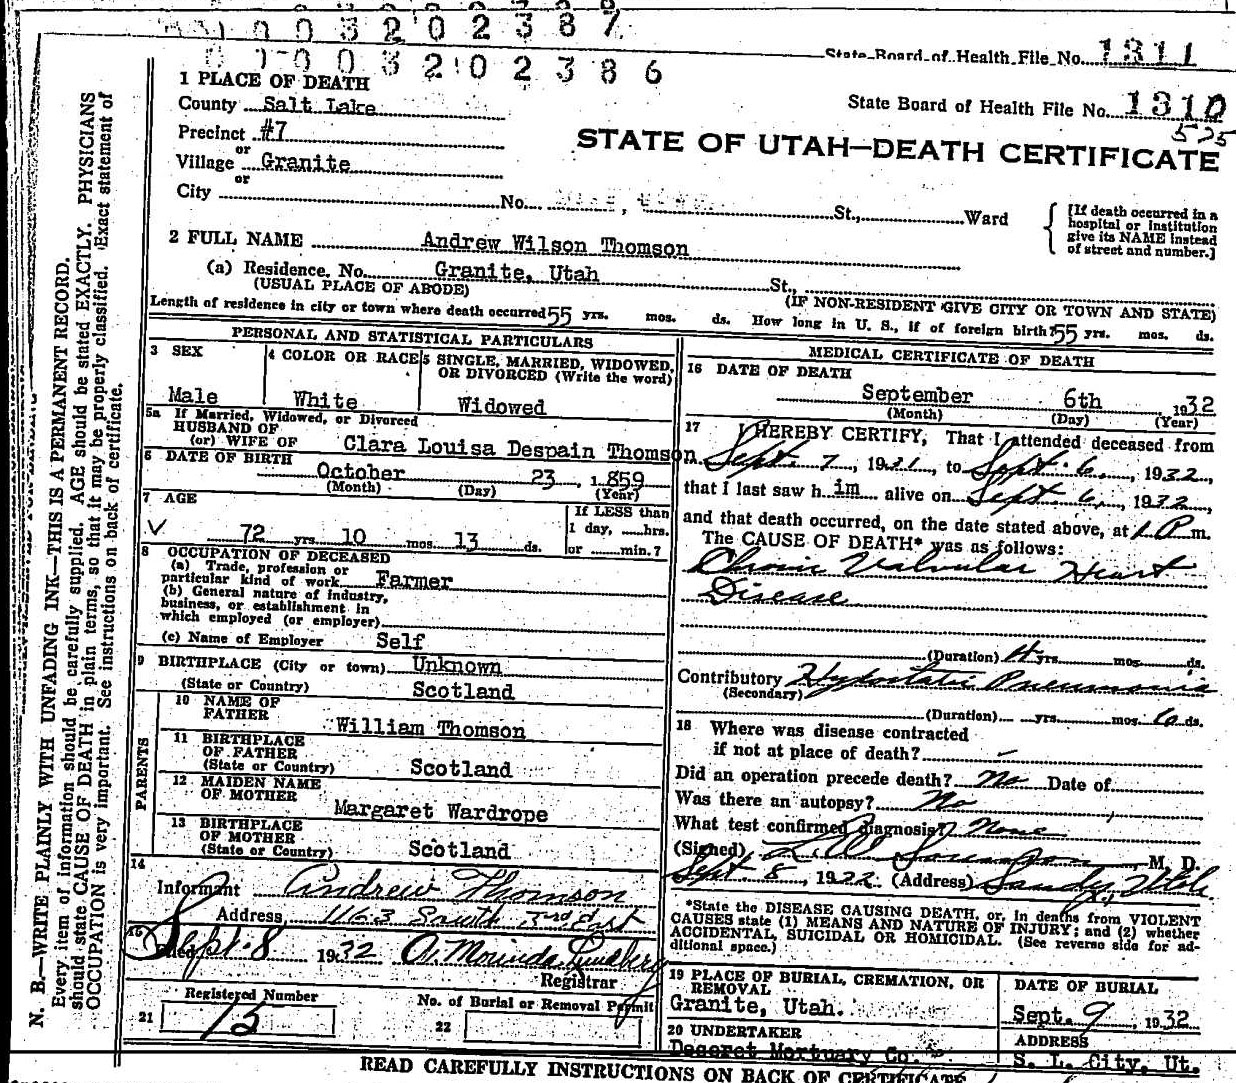 0 0 3 2 0 2 3 8 7
0 0 3 2 0 2 3 8 6
State Board of Health File No. 1311
State Board of Health File No. 1310
5-25
STATE OF UTAH—DEATH CERTIFICATE
1 PLACE OF DEATH
County Salt Lake
Precinct #7
or
Village Granite
or
City No. St., Ward
[If death occurred in a
hospital or institution
give its NAME instead
of street and number.]
2 FULL NAME Andrew Wilson Thomson
(a) Residence. No. Granite, Utah St.,
(USUAL PLACE OF ABODE) (IF NON-RESIDENT GIVE CITY OR TOWN AND STATE)
Length of residence in city or town where death occurred 55 yrs. mos. ds. How long in U. S., if of foreign birth? 55 yrs. mos. ds.
PERSONAL AND STATISTICAL PARTICULARS
3 SEX
Male
4 COLOR OR RACE
White
5 SINGLE, MARRIED, WIDOWED,
OR DIVORCED (Write the word)
Widowed
5a If Married, Widowed, or Divorced
HUSBAND OF
(or) WIFE OF Clara Louisa Despain Thomson
6 DATE OF BIRTH
October 23, 1859
(Month) (Day) (Year)
7 AGE
72 yrs. 10 mos. 13 ds.
If LESS than
1 day, hrs.
or min.?
8 OCCUPATION OF DECEASED
(a) Trade, profession or
particular kind of work Farmer
(b) General nature of industry,
business, or establishment in
which employed (or employer)
(c) Name of Employer Self
9 BIRTHPLACE (City or town) Unknown
(State or Country) Scotland
PARENTS
10 NAME OF
FATHER William Thomson
11 BIRTHPLACE
OF FATHER
(State or Country) Scotland
12 MAIDEN NAME
OF MOTHER Margaret Wardrope
13 BIRTHPLACE
OF MOTHER
(State or Country) Scotland
14
Informant Andrew Thomson
Address, 1163 South 3rd East
15
Filed Sept. 8 1932 A. Morinda Lundberg
Registrar
21 Registered Number
15
22 No. of Burial or Removal Permit
MEDICAL CERTIFICATE OF DEATH
16 DATE OF DEATH
September 6th 1932
(Month) (Day) (Year)
17 I HEREBY CERTIFY, That I attended deceased from
Sept. 7, 1931, to Sept. 6, 1932,
that I last saw him alive on Sept 6, 1932,
and that death occurred, on the date stated above, at 1 P m.
The CAUSE OF DEATH* was as follows:
Chronic Valvular Heart
Disease
(Duration) yrs. mos. ds.
Contributory Hypostatic Pneumonia
(Secondary)
(Duration) yrs. mos. 6 ds.
18 Where was disease contracted
if not at place of death? -
Did an operation precede death? No Date of
Was there an autopsy? No
What test confirmed diagnosis? None
(Signed) M. D.
Sept. 8, 1932 (Address) Sandy, Utah
*State the DISEASE CAUSING DEATH, or, in deaths from VIOLENT
CAUSES state (1) MEANS AND NATURE OF INJURY; and (2) whether
ACCIDENTAL, SUICIDAL OR HOMICIDAL. (See reverse side for ad-
ditional space.)
19 PLACE OF BURIAL, CREMATION, OR
REMOVAL
Granite, Utah.
DATE OF BURIAL
Sept. 9, 1932
20 UNDERTAKER
Deseret Mortuary Co.
ADDRESS
S. L. City, Ut.
READ CAREFULLY INSTRUCTIONS ON BACK OF CERTIFICATE
N. B.—WRITE PLAINLY WITH UNFADING INK—THIS IS A PERMANENT RECORD.
Every item of information should be carefully supplied. AGE should be stated EXACTLY. PHYSICIANS
should state CAUSE OF DEATH in plain terms, so that it may be properly classified. Exact statement of
OCCUPATION is very important. See instructions on back of certificate.